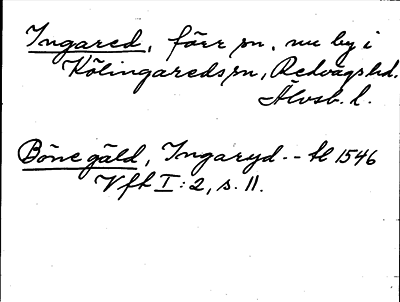 Ingared, förr sn, nu by i
Kölingareds sn, Redvägs hd.
Älvsb. l.
Bönegäld, Ingaryd. -- hl 1546
Vfh I:2, s. 11.